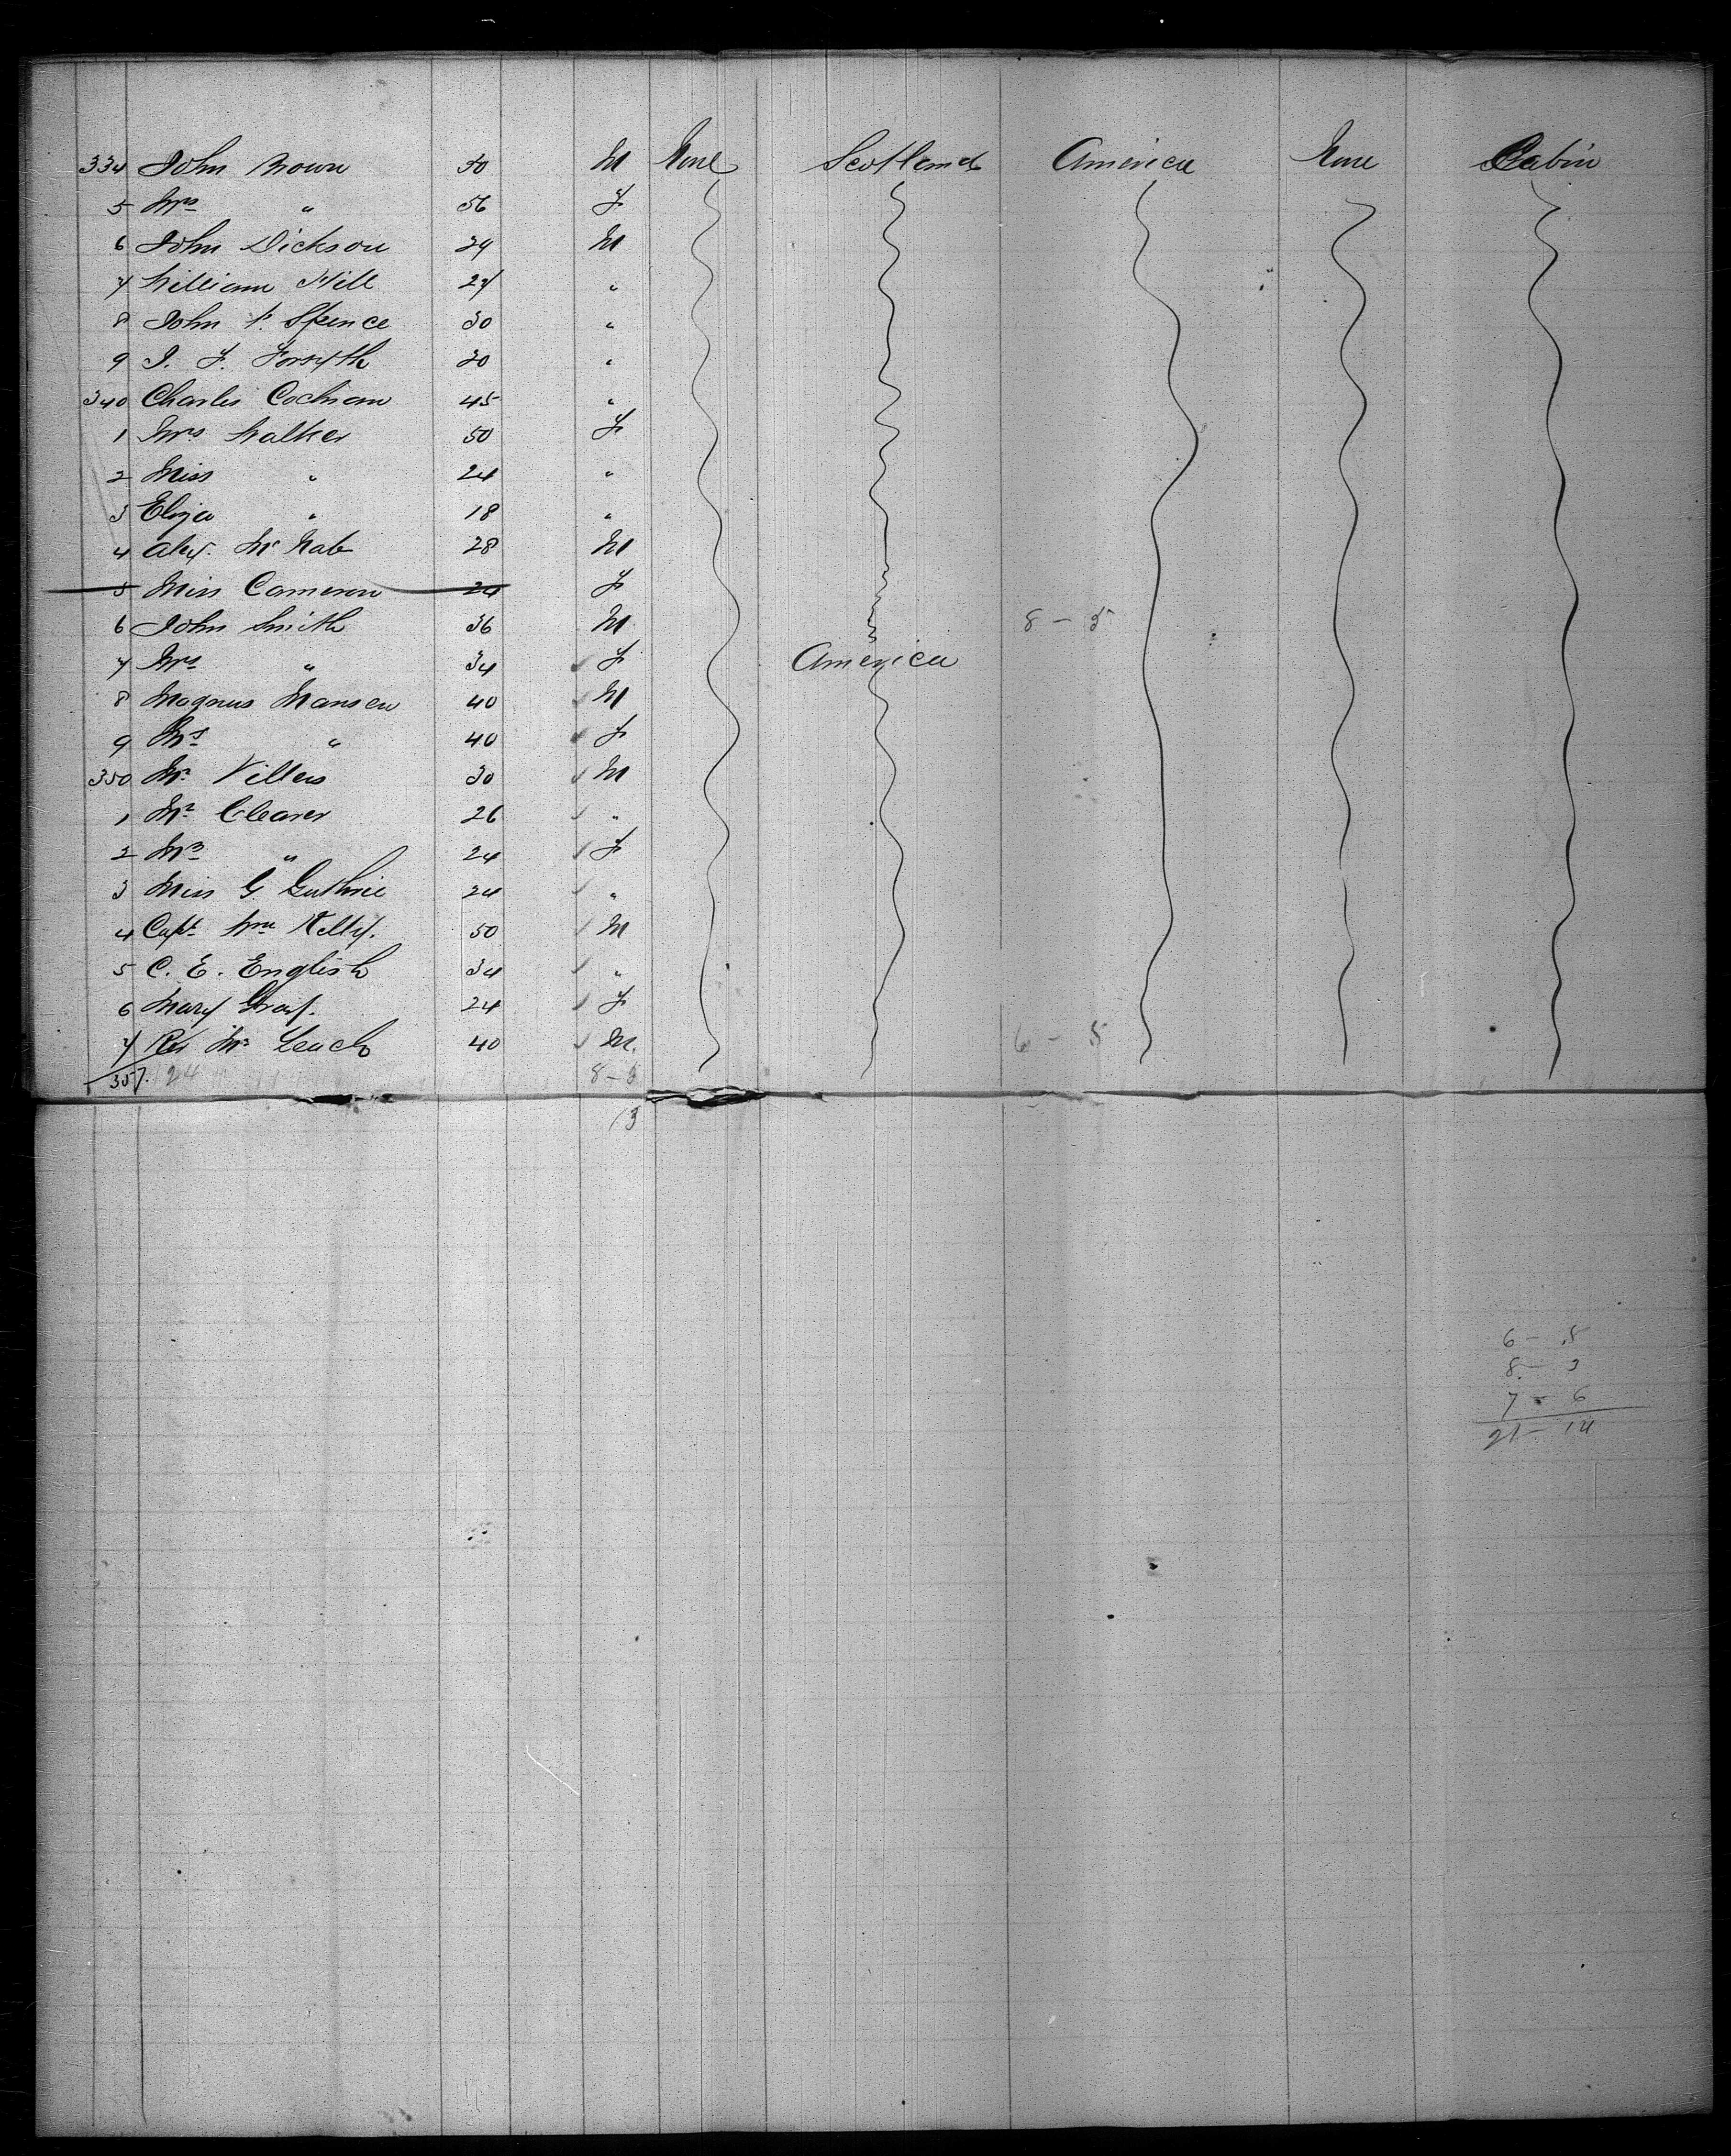 334 John Brown 50 M None Scotland America None Cabin
5 Mrs " 56 F
6 John Dickson 29 M
7 William Hill 27 "
8 John P. Spence 30 "
9 J. F. Forsyth 30 "
340 Charles Cochram 45 "
1 Mrs Walker 50 F
2 Miss " 24 "
3 Eliza " 18 "
4 Alex. Mc Nab 28 M
5 Miss Cameron 24 F
6 John Smith 36 M 8 - 5
7 Mrs " 34 F America
8 Magnus Manson 40 M
9 Mrs " 40 F
350 Mr Villers 30 M
1 Mr Cleaver 26 "
2 Mrs " 24 F
3 Miss G. Guthrie 24 "
4 Capt Wm Kelly. 50 M
5 C. E. English 34 "
6 Mary Gray. 24 F
7 Rev Mr Leach 40 M. 6 - 5
357. 24 8 -
13
6 - 5
8 - 3
7 - 6
21 - 14